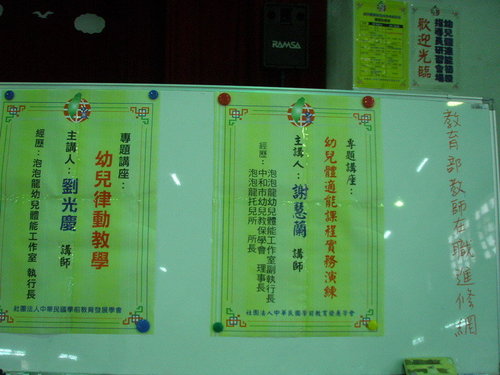 RAMSA
幼兒體適能
指導員研習會場
歡迎光臨
專題講座：
幼兒律動教學
主講人：劉光慶 講師
經歷：泡泡龍幼兒體能工作室 執行長
社團法人中華民國學前教育發展學會
專題講座：
幼兒體適能課程實務演練
主講人：謝慧蘭 講師
經歷：泡泡龍幼兒體能工作室副執行長
中和市幼兒教保學會 理事長
泡泡龍托兒所 所長
社團法人中華民國學前教育發展學會
教育部教師在職進修網